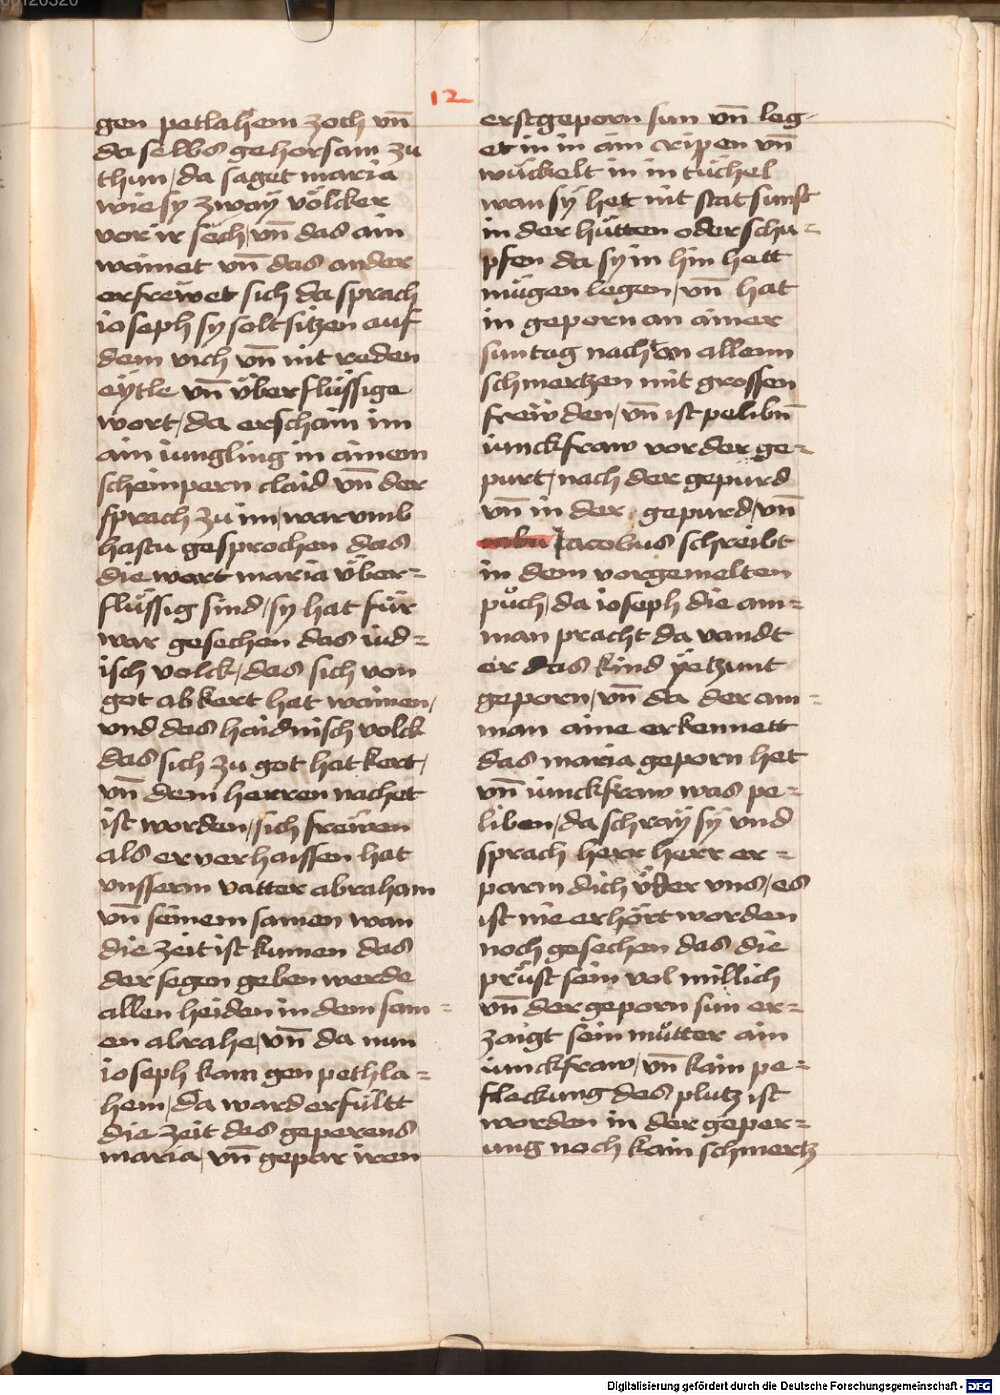 12
gen petlahem zoch vn̄
da selbs gehorsam zu
thun / da saget maria
wie sy zway völcker
vor ir sech / vn̄ das ain
wainet vn̄ das ander
erfrewet sich da sprach
ioseph sy solt sitzen auf
dem vich vn̄ nit reden
eytle vn̄ überflüssige
wort / da erschain im
ain iungling in ainem
scheinpern claid vn̄ der
sprach zu im / warumb
hastu gesprochen das
die wort maria über=
flüssig sind / sy hat für
war gesechen das iud=
isch volck / das sich von
got ab kert hat wainen /
vnd das haidnisch volck
das sich zu got hat kert /
vn̄ dem herren nachet
ist worden / sich freüen
als er verhaissen hat
vnsserm vatter abraham
vn̄ seinem samen wan
die zeit ist kumen das
der segen geben werde
allen heiden in dem sam=
en abrahe / vn̄ da nun
ioseph kam gen pethla=
hem / da ward erfültt
die zeit des geperens
maria / vn̄ gepar iren
erstgeporn sun vn̄ leg-
et in in ain cripen vn̄
wückelt in in tüchel
wan sy het nit stat sunst
in der hütten oder schu=
pfen da sy in hin hett
mügen legen / vn̄ hat
in geporn an ainer
suntag nacht on allenn
schmertzen mit grossen
freiwden / vn̄ ist pelibn̄
iunckfraw vor der ge=
purt / nach der gepurd
vn̄ in der gepurd / vn̄
Jacobus schreibt
in dem vorgemelten
půch / da ioseph die am=
man pracht da vandt
er das kind yetzunt
geporn / vn̄ da der am=
man aine erkennett
das maria geporn het
vn̄ iunckfraw was pe=
liben / da schray sy vnd
sprach herr herr er=
parm dich über vns / es
ist nie erhört worden
noch gesechen das die
prüst sein vol millich
vn̄ der geporn sun er=
zaigt sein můtter ain
iunckfraw / vn̄ kain pe=
fleckung des plutz ist
worden in der geper=
ung noch kain schmertz
Digitalisierung gefördert durch die Deutsche Forschungsgemeinschaft - DFG